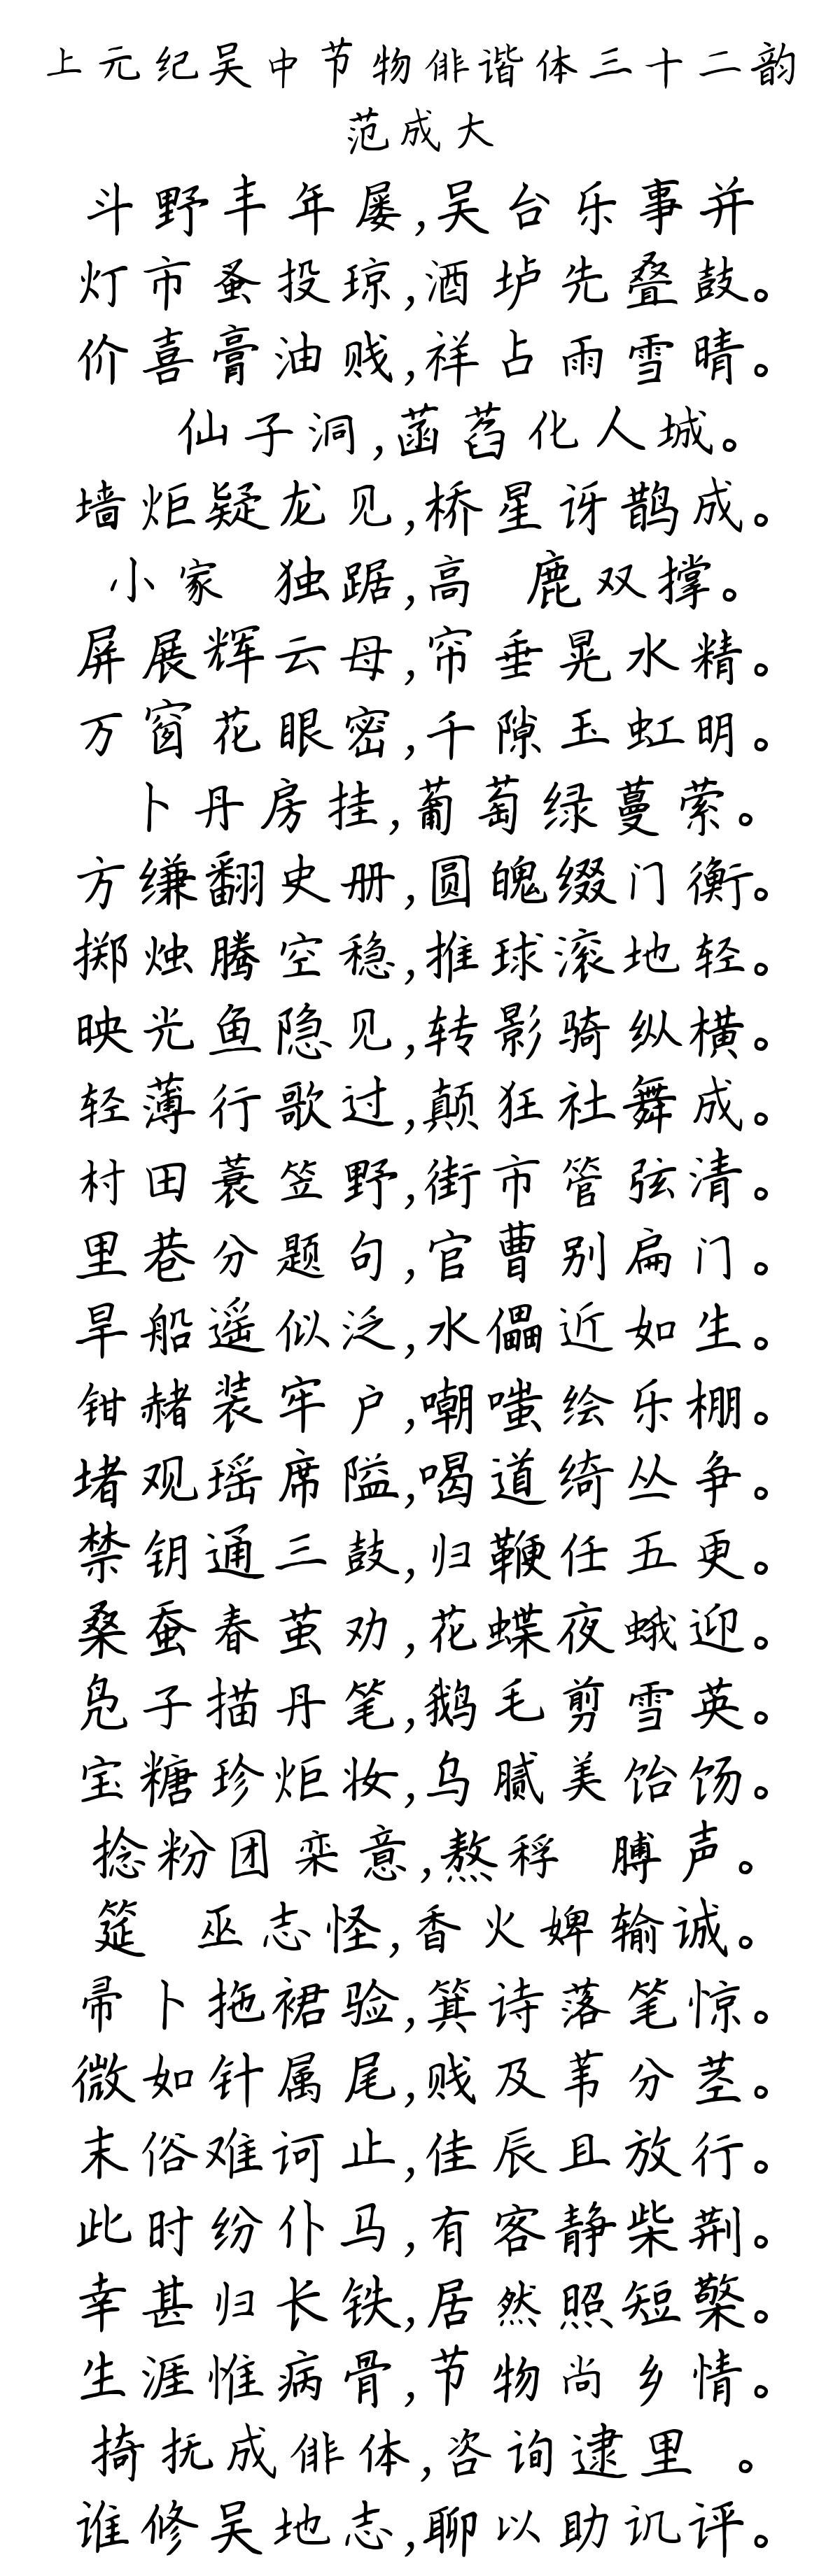 上元纪吴中节物俳谐体三十二韵
范成大
斗野丰年屡,吴台乐事并
灯市蚤投琼,酒垆先叠鼓。
价喜膏油贱,祥占雨雪晴。
仙子洞,菡萏化人城。
墙炬疑龙见,桥星讶鹊成。
小家 独踞,高 鹿双撑。
屏展辉云母,帘垂晃水精。
万窗花眼密,千隙玉虹明。
卜丹房挂,葡萄绿蔓萦。
方缣翻史册,圆魄缀门衡。
掷烛腾空稳,推球滚地轻。
映光鱼隐见,转影骑纵横。
轻薄行歌过,颠狂社舞成。
村田蓑笠野,街市管弦清。
里巷分题句,官曹别扁门。
旱船遥似泛,水儡近如生。
钳赭装牢户,嘲嗤绘乐棚。
堵观瑶席隘,喝道绮丛争。
禁钥通三鼓,归鞭任五更。
桑蚕春茧劝,花蝶夜蛾迎。
凫子描丹笔,鹅毛剪雪英。
宝糖珍炬妆,乌腻美饴饧。
捻粉团栾意,熬稃 膊声。
筵 巫志怪,香火婢输诚。
帚卜拖裙验,箕诗落笔惊。
微如针属尾,贱及苇分茎。
末俗难诃止,佳辰且放行。
此时纷仆马,有客静柴荆。
幸甚归长铁,居然照短檠。
生涯惟病骨,节物尚乡情。
掎抚成俳体,咨询逮里 。
谁修吴地志,聊以助讥评。